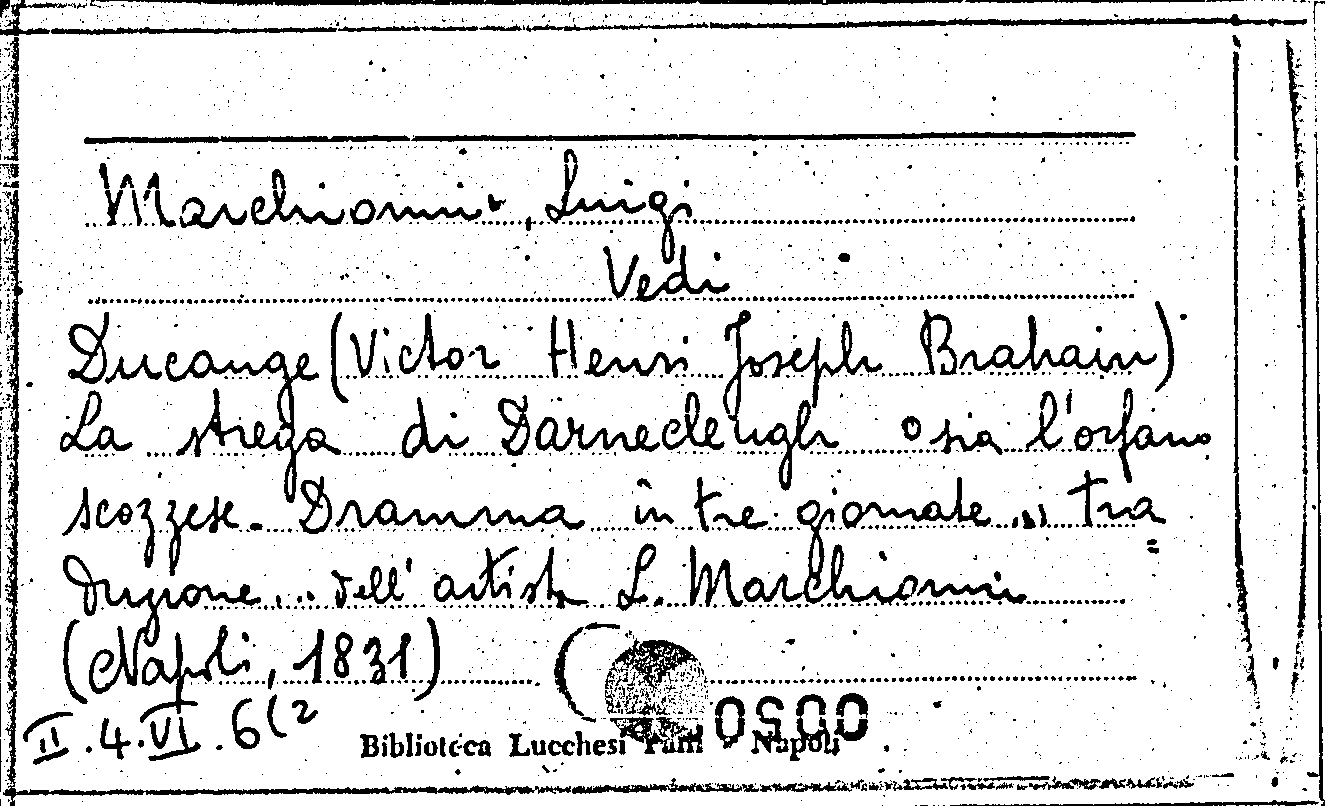 Marchionni, Luigi
Vedi
Ducange (Victor Henri Joseph Brahain)
La strega di Darnecleugh o sia l'orfano
scozzese. Dramma in tre giornate... tra=
duzione... dell'artista L. Marchionni
(Napoli, 1831)
II.4.VI.6(2
0500
Biblioteca Lucchesi Palli - Napoli